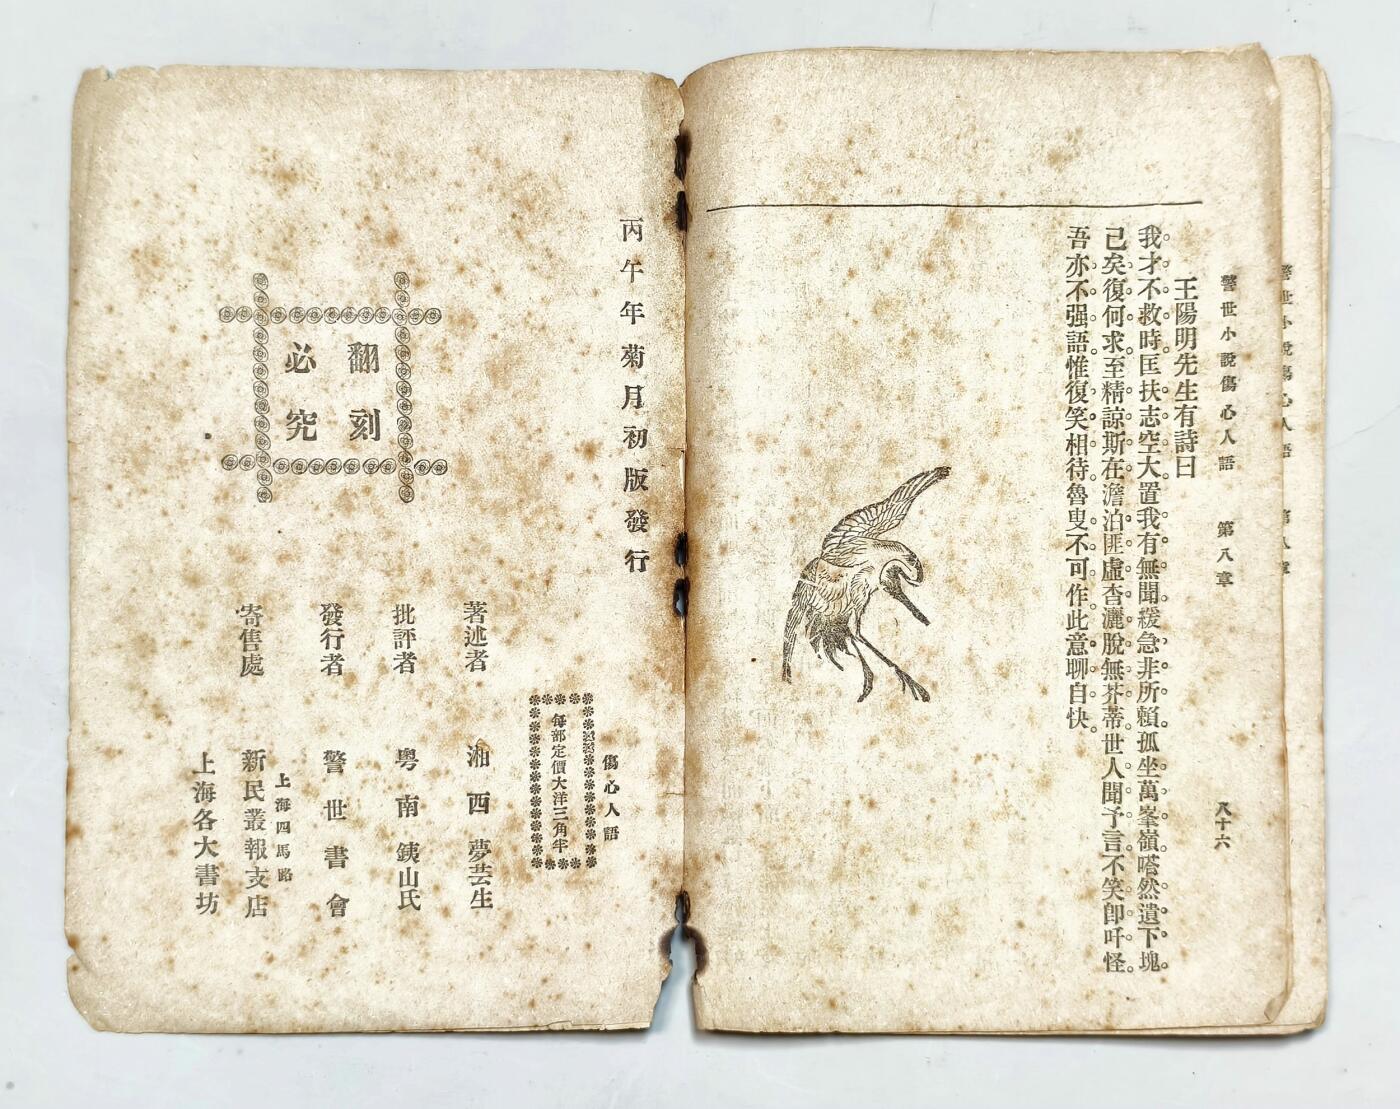 警世小說傷心人語　第八章　八十六
王陽明先生有詩曰
我才不救時匡扶志空大置我有無聞緩急非所賴孤坐萬峯嶺嗒然遺下塊
己矣復何求至精諒斯在澹泊匪虛杳灑脫無芥蒂世人聞予言不笑卽吁怪
吾亦不强語惟復笑相待魯叟不可作此意聊自快
丙午年菊月初版發行
傷心人語
每部定價大洋三角半
著述者　湘西夢芸生
批評者　粵南銕山氏
發行者　警世書會
寄售處　上海四馬路
新民叢報支店
上海各大書坊
翻刻
必究